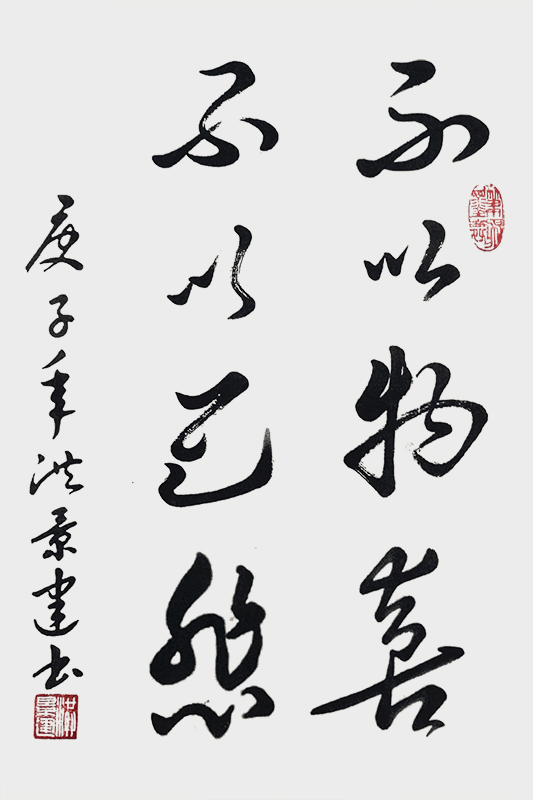 不以物喜
不以己悲
庚子年洪景建书
洪景建